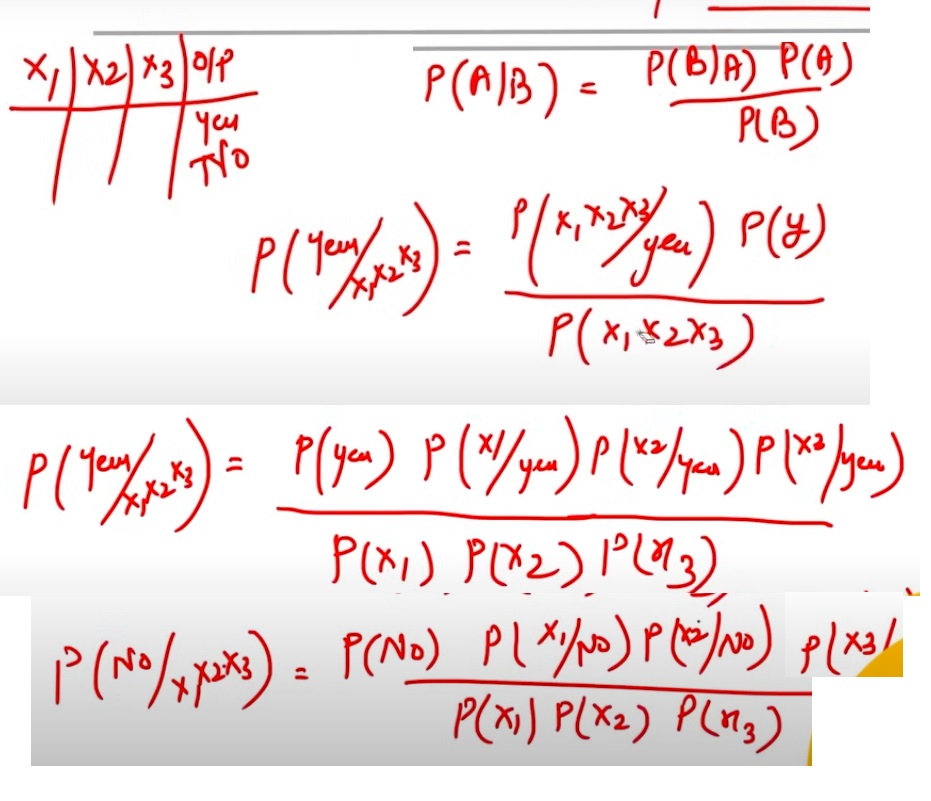 x₁ | x2 | x3 | O/P
yes
No
P(A|B) = P(B|A) P(A)
P(B)
P(yes/x₁x2x3) = P(x₁x2x3/yes) P(y)
P(x₁x2x3)
P(yes/x₁x2x3) = P(yes) P(x1/yes) P(x2/yes) P(x3/yes)
P(x₁) P(x2) P(x3)
P(No/x₁x2x3) = P(No) P(x₁/No) P(x2/No) P(x3/
P(x₁) P(x2) P(x3)